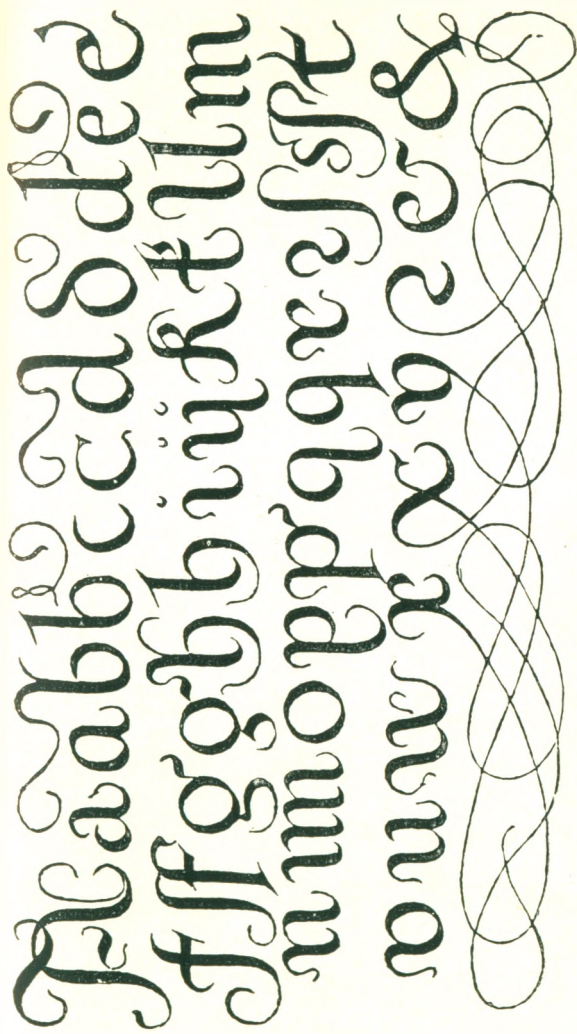 A a a b b c c d d d e e
f ff g g h h i ij k k ll m
n m o p p q q r ſ s ſt
v u w x x y z z &